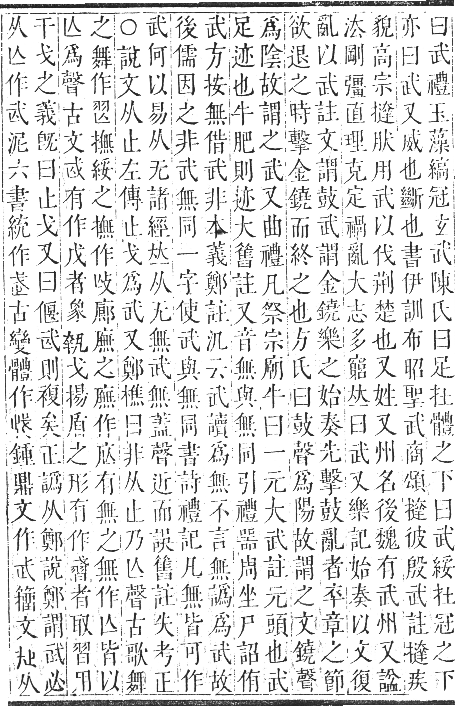 曰武禮玉藻縞冠玄武陳氏曰足在體之下曰武綏在冠之下
亦曰武又威也斷也書伊訓布昭聖武商頌撻彼殷武註撻疾
貌高宗撻肰用武以伐荆楚也又姓又州名後魏有武州又諡
法剛彊直理克定禍亂大志多窮𠀤曰武又樂記始奏以文復
亂以武註文謂鼓武謂金鐃樂之始奏先擊鼓亂者卒章之節
欲退之時擊金鐃而終之也方氏曰鼓聲爲陽故謂之文鐃聲
爲陰故謂之武又曲禮凡祭宗廟牛曰一元大武註元頭也武
足迹也牛肥則迹大舊註又音無與無同引禮器周坐尸詔侑
武方按無借武非本義鄭註汎云武讀爲無不言無譌爲武故
後儒因之非武無同一字使武與無同書詩禮記凡無皆可作
武何以易从无諸經𠀤从无無武無蓋聲近而誤舊註失考正
○說文从止左傳止戈爲武又鄭樵曰非从止乃亾聲古歌舞
之舞作𦐀撫綏之撫作㕮廊廡之廡作㡃有無之無作亾皆以
亾爲聲古文或有作戊者象執戈揚盾之形有作者取習用
干戈之義旣曰止戈又曰偃武則複矣正譌从鄭說鄭謂武必
从亾作武泥六書統作古變體作鍾鼎文作武籀文从